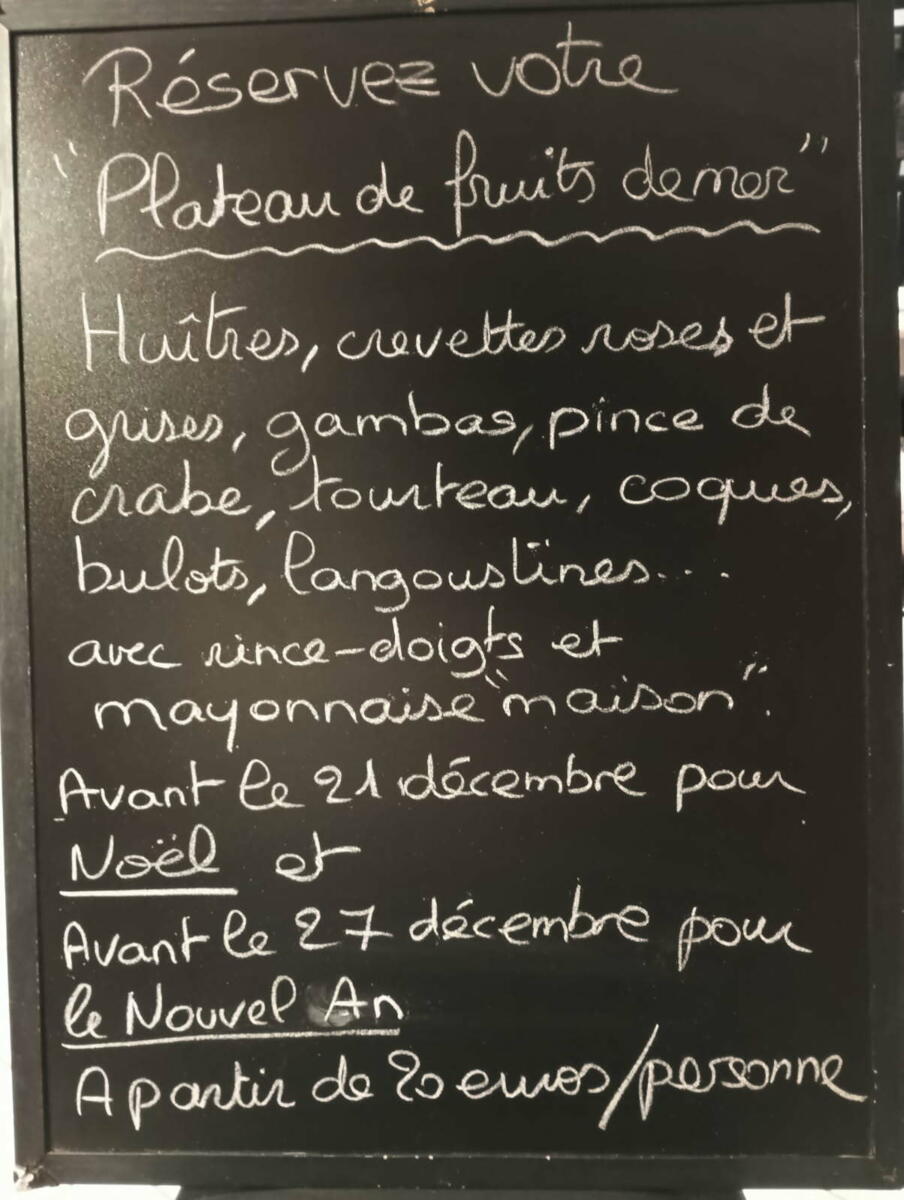 Réservez votre
"Plateau de fruits de mer"
Huîtres, crevettes roses et
grises, gambas, pince de
crabe, tourteau, coques,
bulots, langoustines...
avec rince-doigts et
mayonnaise "maison".
Avant le 21 décembre pour
Noël et
Avant le 27 décembre pour
le Nouvel An
A partir de 20 euros/personne